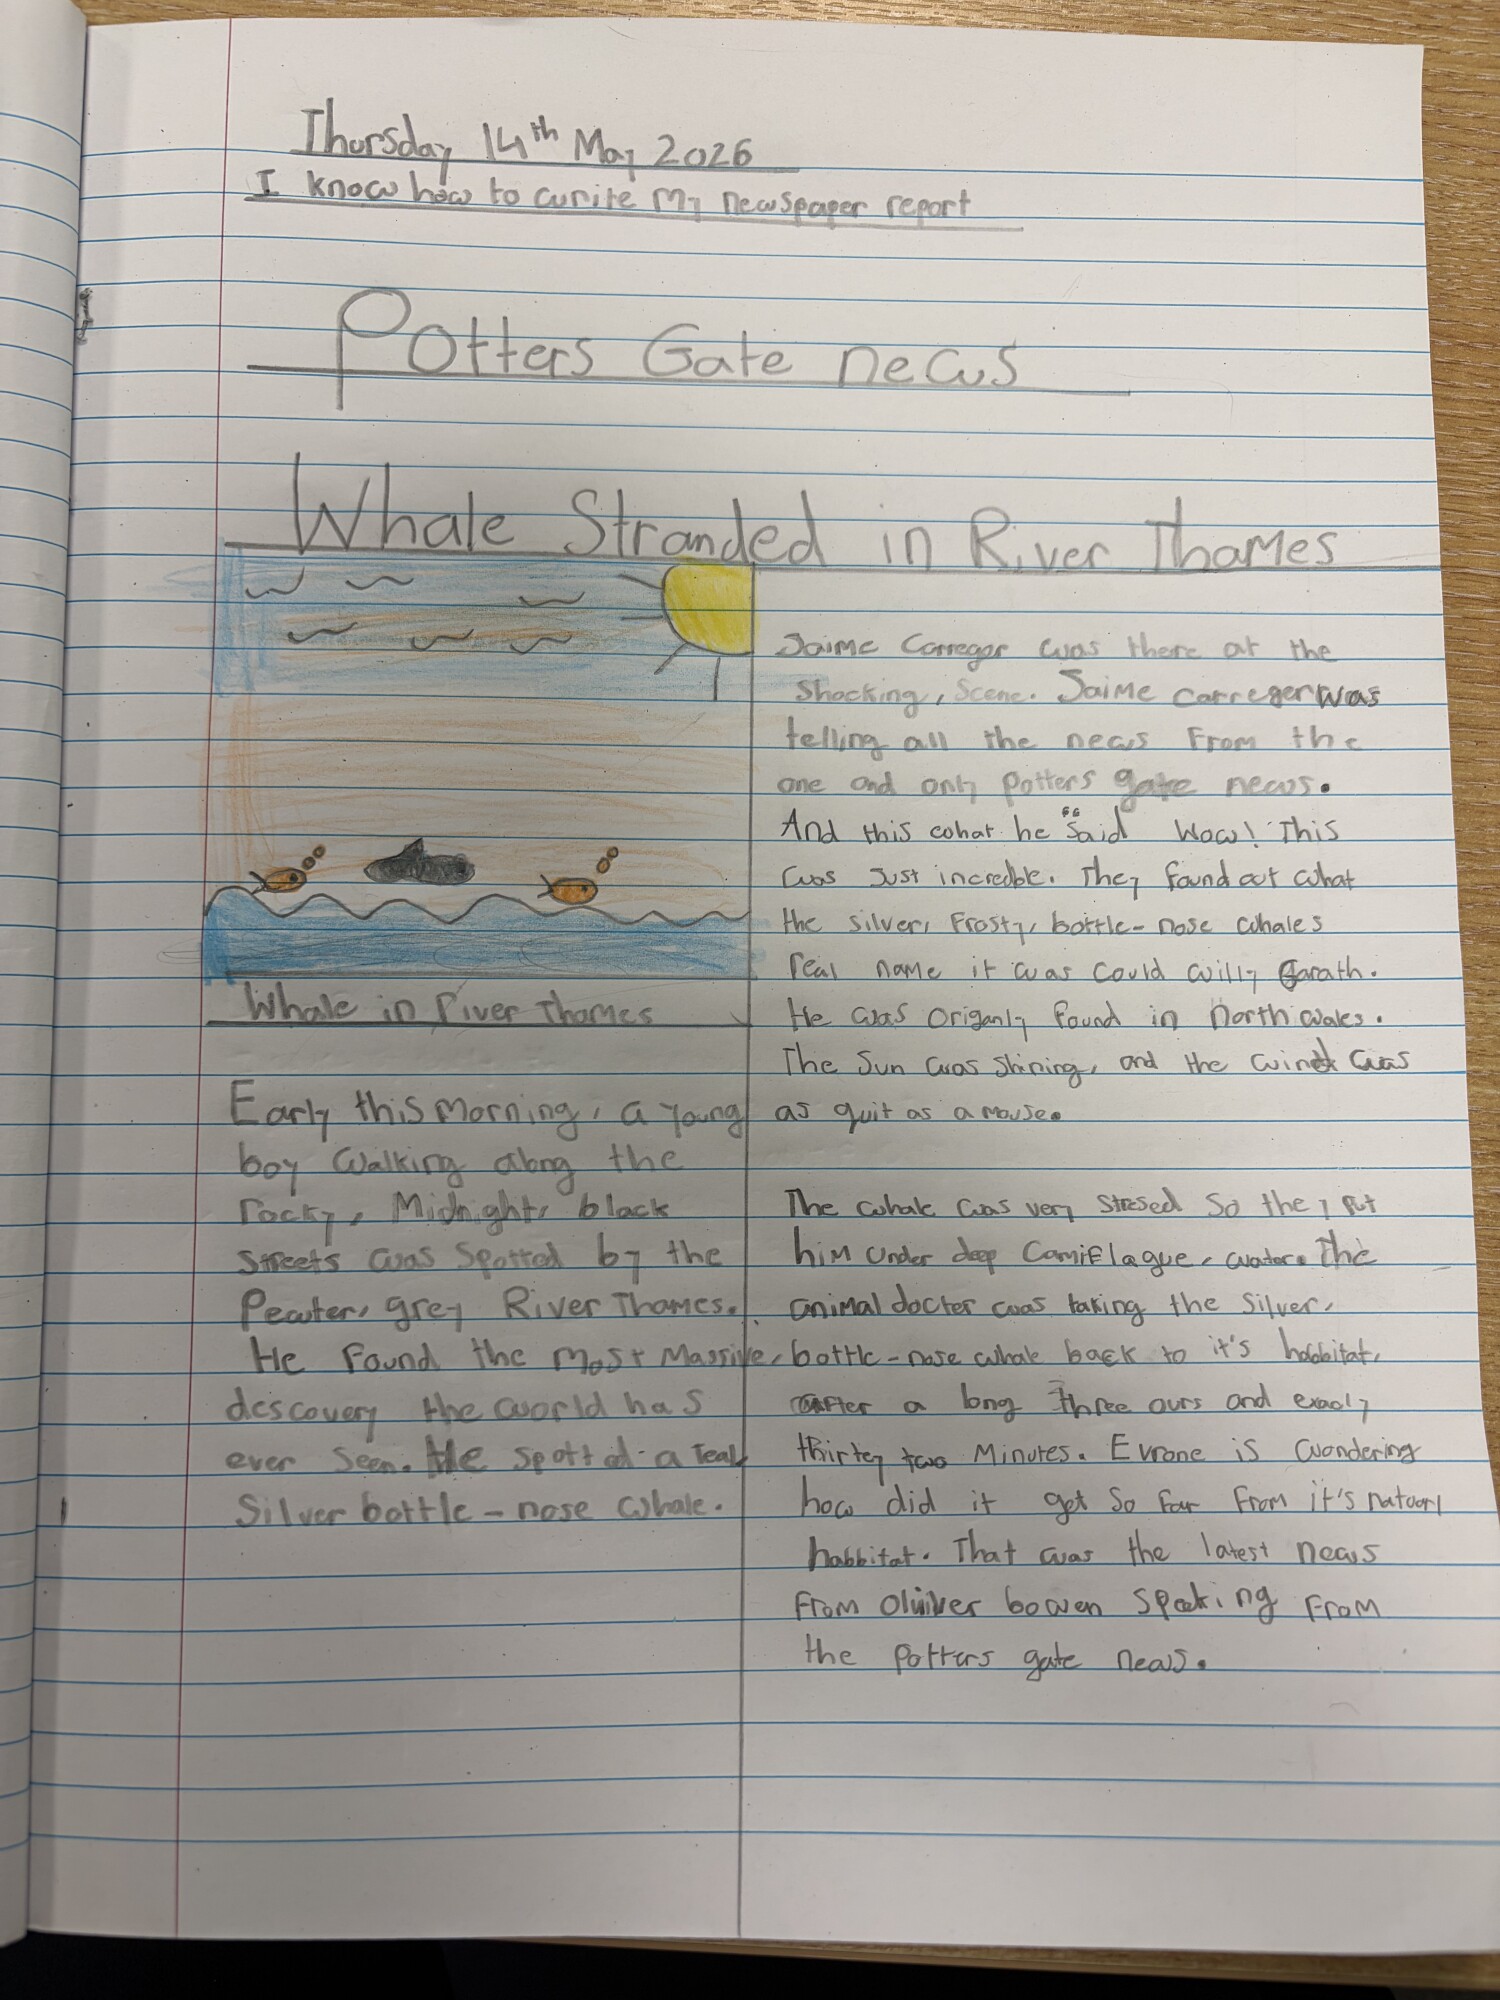 Thursday 14th May 2026
I know how to write my newspaper report
Potters Gate news
Whale Stranded in River Thames
Whale in River Thames
Early this morning, a young
boy walking along the
rocky, Midnight, black
streets was spotted by the
Pewter, grey River Thames.
He found the most massive,
descovery the world has
ever seen. He spotted a teal
Silver bottle-nose whale.
Jaime Carregar was there at the
shocking, scene. Jaime carreger was
telling all the news From the
one and only potters gate news.
And this what he "said Wow! This
was just increble. They found out what
the silver, frosty, bottle-nose whales
real name it was could willy Garath.
He was origanly found in North wales.
The Sun was shining, and the wind was
as quit as a mouse.
The whale was very stresed so they put
him under deep Camiflague, water. The
animal docter was taking the silver,
bottle-nose whale back to it's habbitat,
after a long three ours and exacly
thirtey two minutes. Evrone is wondering
how did it get so far from it's natoorl
habbitat. That was the latest news
from bowen speaking from
the potters gate news.